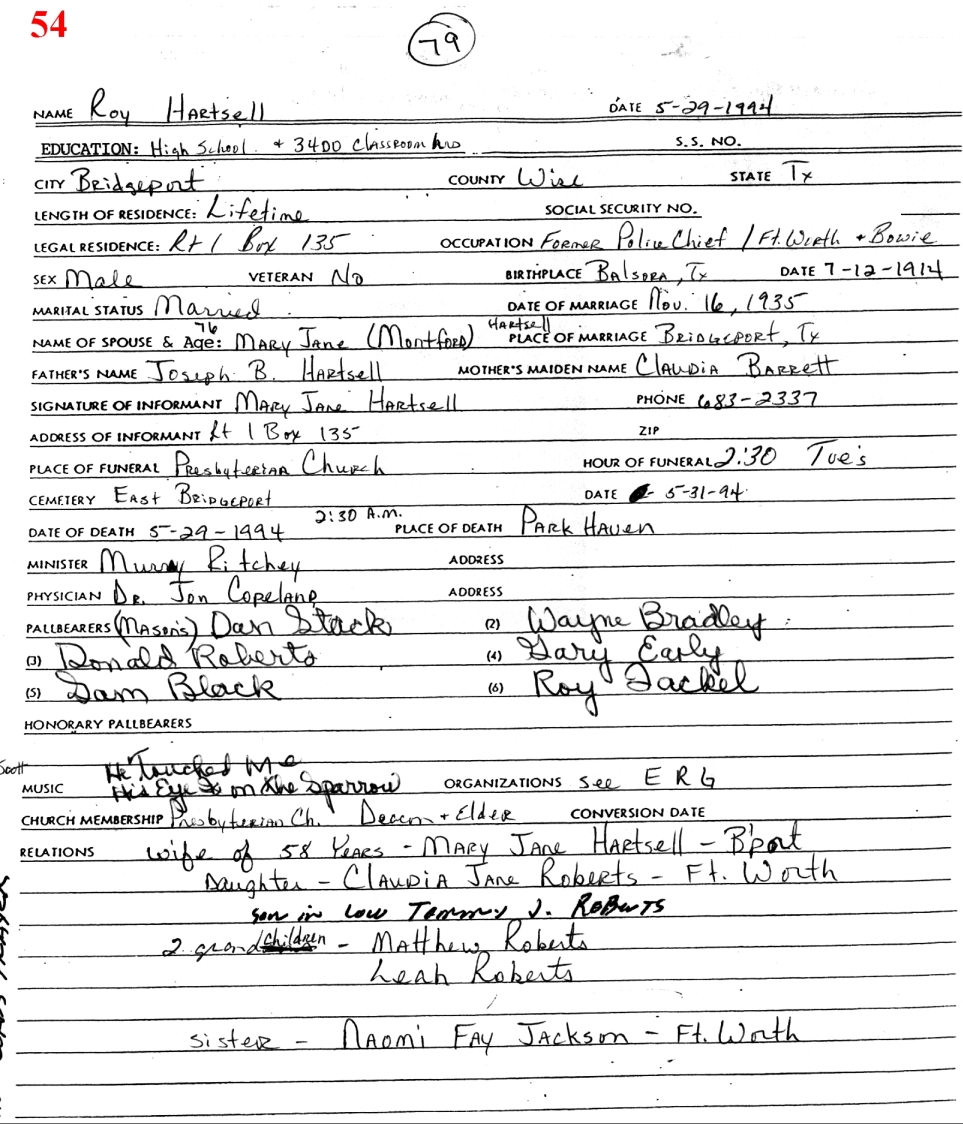 54
79
NAME Roy Hartsell DATE 5-29-1994
EDUCATION: High School + 3400 Classroom hrs S.S. NO.
CITY Bridgeport COUNTY Wise STATE Tx
LENGTH OF RESIDENCE: Lifetime SOCIAL SECURITY NO.
LEGAL RESIDENCE: Rt 1 Box 135 OCCUPATION Former Police Chief / Ft. Worth + Bowie
SEX Male VETERAN No BIRTHPLACE Balsora, Tx DATE 7-12-1914
MARITAL STATUS Married DATE OF MARRIAGE Nov. 16, 1935
NAME OF SPOUSE & Age: 76 Mary Jane (Montford) Hartsell PLACE OF MARRIAGE Bridgeport, Tx
FATHER'S NAME Joseph B. Hartsell MOTHER'S MAIDEN NAME Claudia Barrett
SIGNATURE OF INFORMANT Mary Jane Hartsell PHONE 683-2337
ADDRESS OF INFORMANT Rt 1 Box 135 ZIP
PLACE OF FUNERAL Presbyterian Church HOUR OF FUNERAL 2:30 Tue's
CEMETERY East Bridgeport DATE 5-31-94
DATE OF DEATH 5-29-1994 2:30 A.M. PLACE OF DEATH Park Haven
MINISTER Murray Ritchey ADDRESS
PHYSICIAN Dr. Jon Copeland ADDRESS
PALLBEARERS (Mason's) Dan Stack (2) Wayne Bradley
(3) Donald Roberts (4) Gary Early
(5) Sam Black (6) Roy Jackel
HONORARY PALLBEARERS
Scott
He Touched Me
MUSIC His Eye Is on the Sparrow ORGANIZATIONS see ERG
CHURCH MEMBERSHIP Presbyterian Ch. Deacon + Elder CONVERSION DATE
RELATIONS wife of 58 Years - Mary Jane Hartsell - B'port
Daughter - Claudia Jane Roberts - Ft. Worth
son in law Tommy J. Roberts
2 grandchildren - Matthew Roberts
Leah Roberts
sister - Naomi Fay Jackson - Ft. Worth